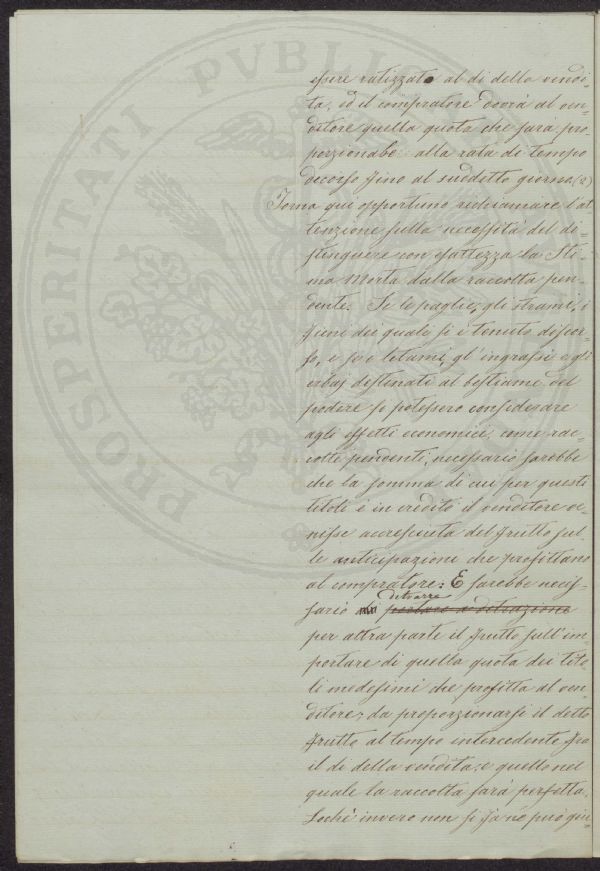 PROSPERITATI PVBLIC
essere ratizzato al dì della vendi=
ta, ed il compratore dovrà al ven=
ditore quella quota che sarà pro=
porzionabe alla rata di tempo
decorso fino al suddetto giorno (2)
Torna qui opportuno richiamare l'at
tenzione sulla necessità del di=
stinguere con esattezza la Sti=
ma Morta dalla raccolta pen=
dente. Se le paglie, gli strami, i
fieni dei quali si è tenuto discor=
so, e se i letami, gl'ingrassi e gli
erbaj destinati al bestiame del
podere si potessero considerare
agli effetti economici, come rac=
colte pendenti, necessario sarebbe
che la somma di cui per questi
titoli è in credito il venditore ve
nisse accresciuta del frutto sul
le anticipazioni che profittano
al compratore: E sarebbe neces=
sario di detrarre portare a detrazione
per altra parte il frutto sull'im
portare di quella quota dei tito
li medesimi che profitta al ven=
ditore, da proporzionarsi il detto
frutto al tempo intercedente fra
il dì della vendita, e quello nel
quale la raccolta sarà perfetta.
Lochè invero non si fa nò può giu=